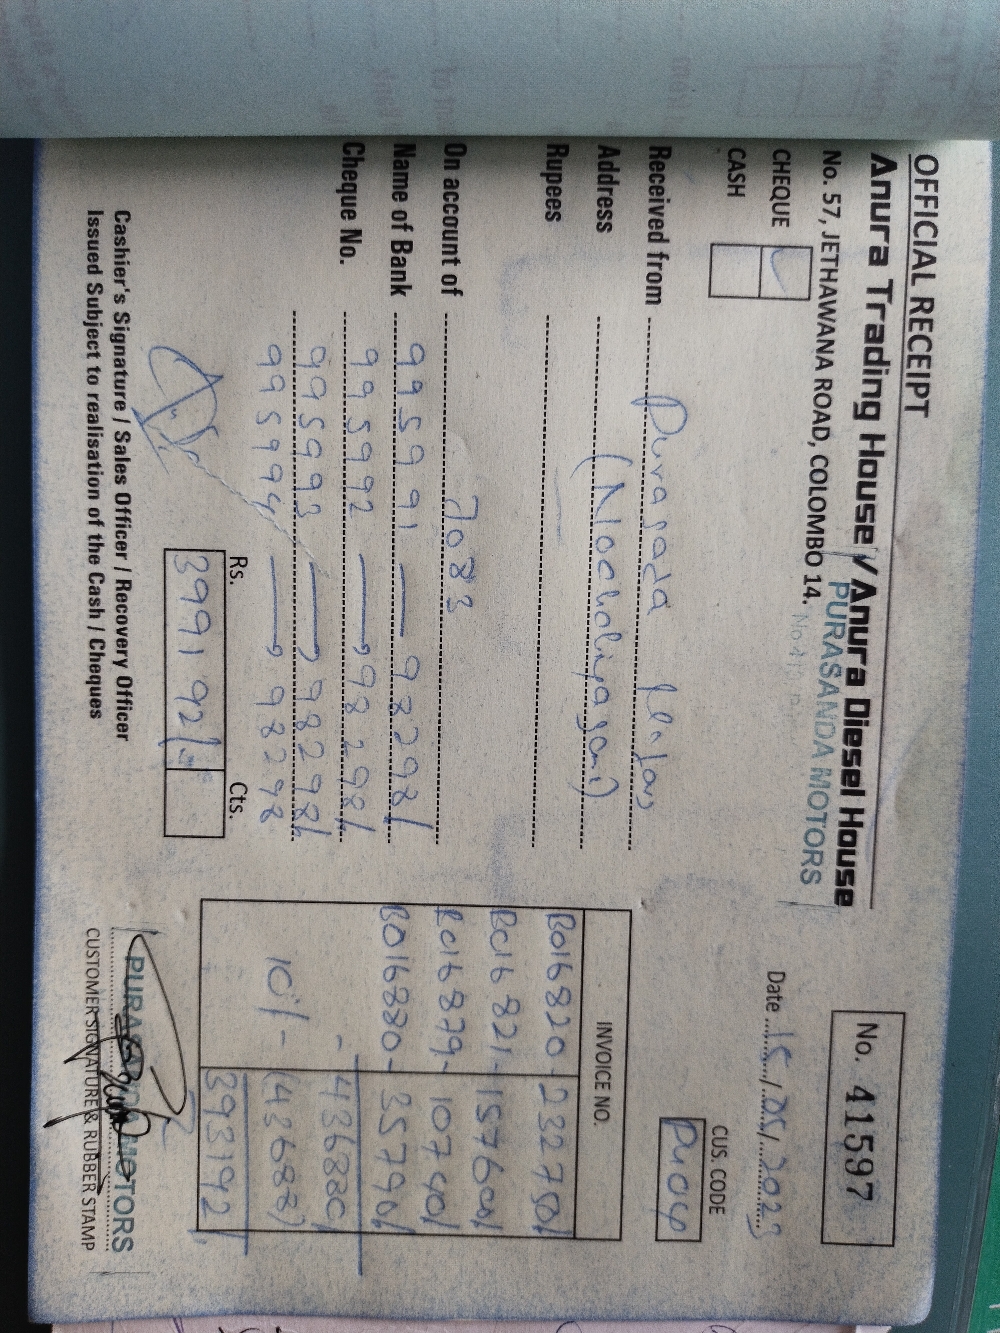 OFFICIAL RECEIPT
Anura Trading House / Anura Diesel House
No. 57, JETHAWANA ROAD, COLOMBO 14.
PURASANDA MOTORS
No. 41597
CHEQUE
CASH
Date 15/05/2023
CUS. CODE
Received from
Address
Rupees
On account of 7083
Name of Bank 995991 — 98298/
Cheque No. 995992 — 98298/
995993 — 98298/
995994 — 98298
Rs. Cts.
INVOICE NO.
B016820 - 232750/
B016821 - 157600/
B016879 - 10740/
B016880 - 35790/
- 436880/
10% - (43688)
393192/
Cashier's Signature / Sales Officer / Recovery Officer
Issued Subject to realisation of the Cash / Cheques
PURASANDA MOTORS
CUSTOMER SIGNATURE & RUBBER STAMP